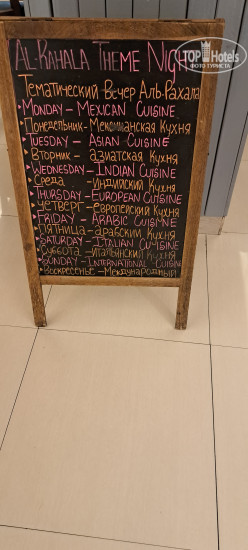 AL-RAHALA THEME Nig
Тематический Вечер Аль-Рахала
MONDAY - MEXICAN CUISINE
Понедельник - Мексиканская Кухня
TUESDAY - ASIAN CUISINE
Вторник - азиатская Кухня
WEDNESDAY - INDIAN CUISINE
Среда - Индийский Кухня
THURSDAY - EUROPEAN CUISINE
Четверг - Европейский Кухня
FRIDAY - ARABIC CUISINE
Пятница - арабский Кухня
SATURDAY - ITALIAN CUISINE
Суббота - Итальянский Кухня
SUNDAY - INTERNATIONAL CUISINE
Воскресенье - Международный
TopHotels
ФОТО ТУРИСТА